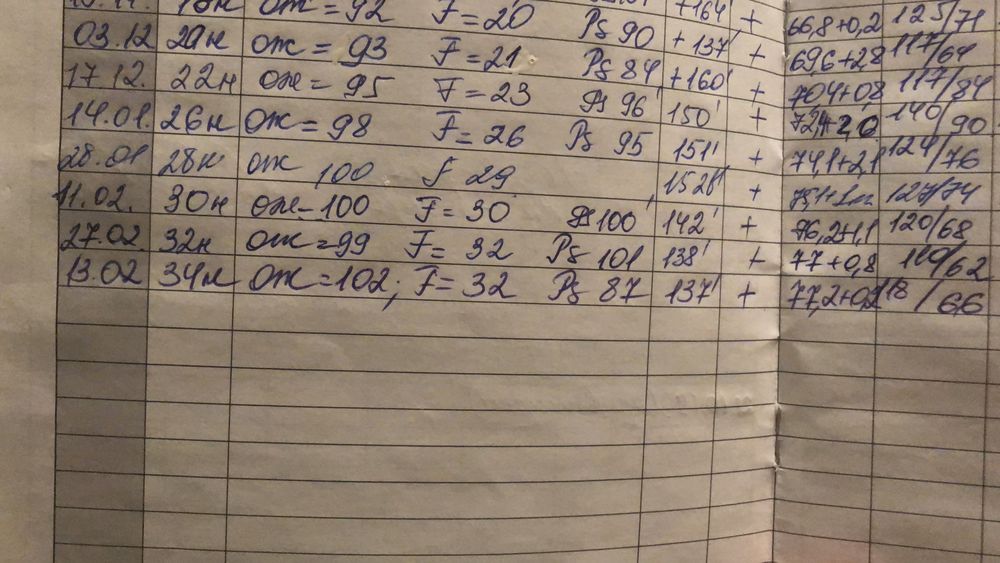 18н ОЖ=92 F=20 Ps 90 +164' + 66,8+0,2 125/71
03.12 20н ОЖ=93 F=21 Ps 84 +137' + 69,6+2,8 117/64
17.12. 22н ОЖ=95 F=23 Ps 96 +160' + 70,4+0,8 117/84
14.01. 26н ОЖ=98 F=26 Ps 95 150' + 72,4+2,0 140/90
28.01 28н ОЖ 100 F 29 151' + 74,1+2,1 124/76
11.02. 30н ОЖ=100 F=30 Ps 100 142' + 127/74
27.02. 32н ОЖ=99 F=32 Ps 101 138' + 76,2+1,1 120/68
13.02 34н ОЖ=102; F=32 Ps 87 137' + 77+0,8 110/62
77,2+0,2 118/66